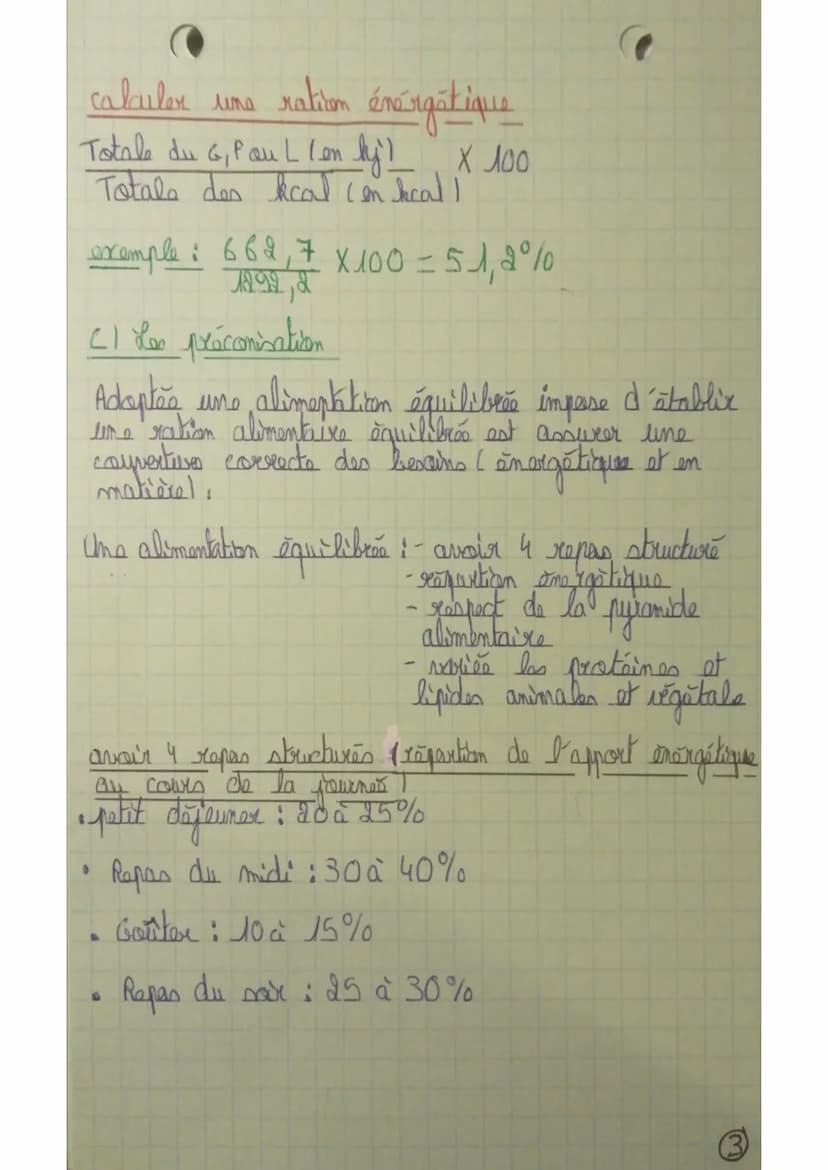 calculer une ration énérgétique
Totale du G, P ou L (en kj)
X 100
Totale des kcal (en kcal)
exemple : 662,7
X100 = 51,2%
1292,2
C) Les préconisation
Adaptée une alimentation équilibrée impose d'établir
une ration alimentaire équilibré est assurer une
couverture correcte des besoins (énergétique et en
matière).
Une alimentation équilibrée : - avoir 4 repas structuré
- répartion énergétique
- respect de la pyramide
alimentaire
- variée les protéines et
lipides animales et végétale
avoir 4 repas structurés (répartion de l'apport énergétique
au cours de la journes)
• petit déjeuner : 20 à 25%
• Repas du midi : 30 à 40%
• Goûter : 10 à 15%
• Repas du soir : 25 à 30%
3